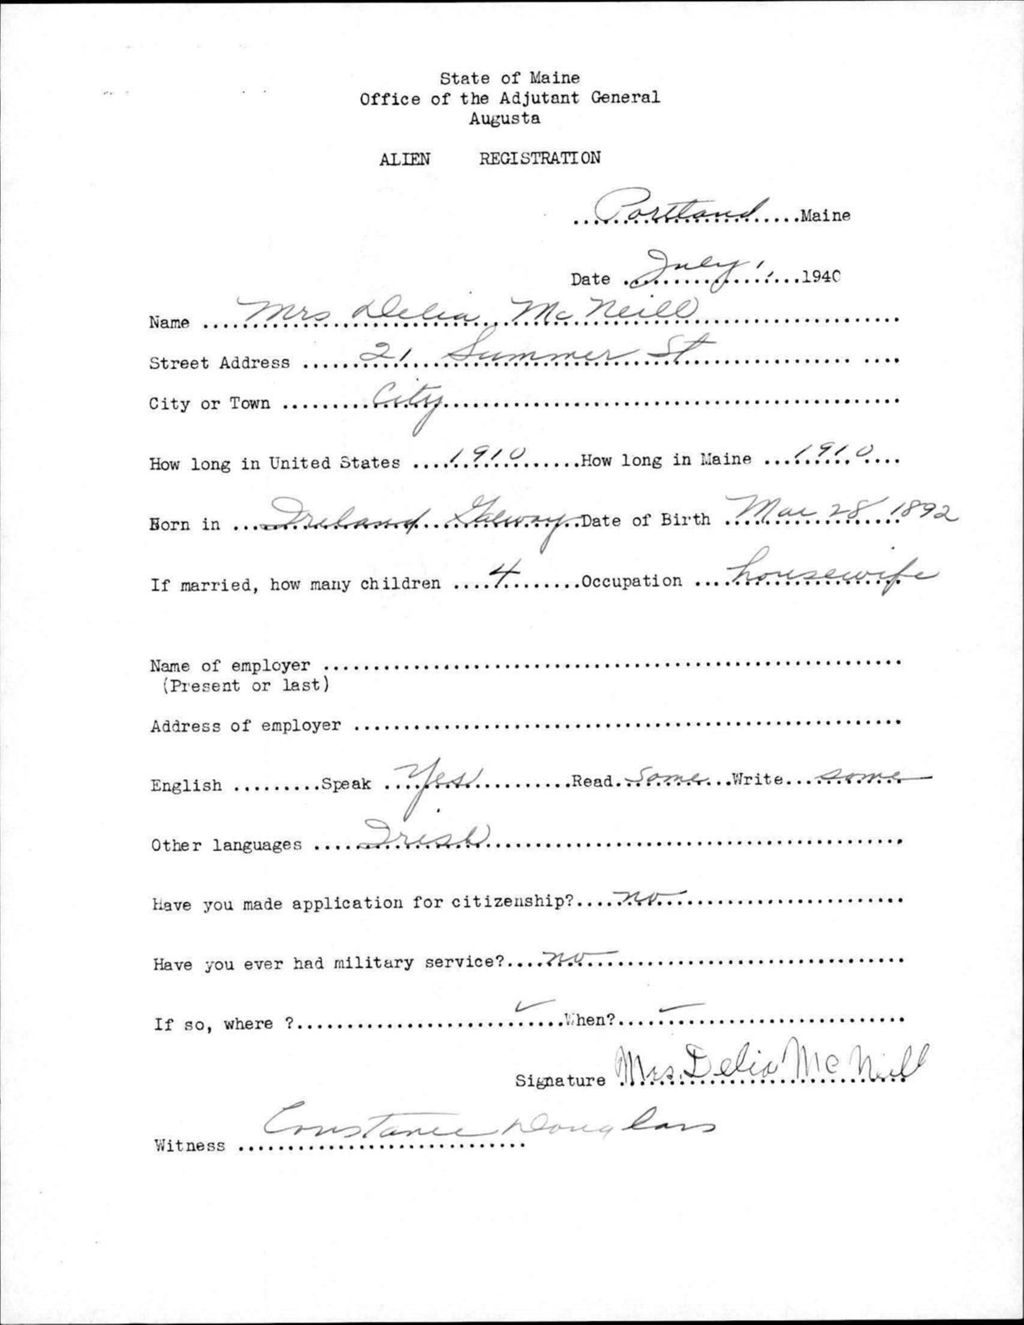 State of Maine
Office of the Adjutant General
Augusta
ALIEN REGISTRATION
Portland Maine
Date July 1, 1940
Name Mrs Delia McNeill
Street Address 21 Summer St
City or Town City
How long in United States 1910 How long in Maine 1910
Born in Ireland Galway Date of Birth Mar 28 1892
If married, how many children 4 Occupation housewife
Name of employer
(Present or last)
Address of employer
English Speak Yes Read Some Write some
Other languages Irish
Have you made application for citizenship? no
Have you ever had military service? no
If so, where ? When?
Signature Mrs. Delia McNeill
Witness Constance Douglass